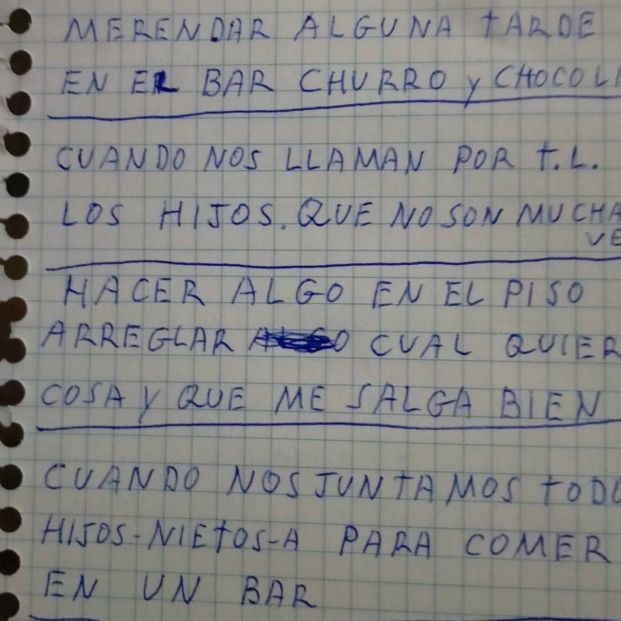 MERENDAR ALGUNA TARDE
EN EL BAR CHURRO y CHOCOL
CUANDO NOS LLAMAN POR T.L.
LOS HIJOS. QUE NO SON MUCHA
VE
HACER ALGO EN EL PISO
ARREGLAR CUAL QUIER
COSA Y QUE ME SALGA BIEN
CUANDO NOS JUNTAMOS TODO
HIJOS-NIETOS-A PARA COMER
EN UN BAR